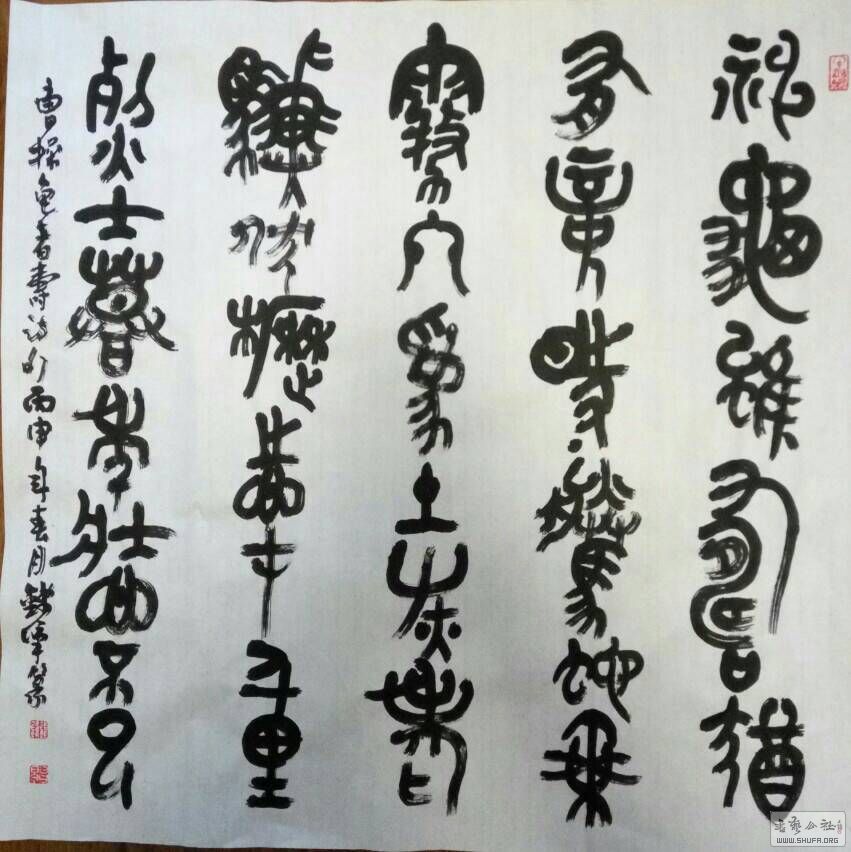 神龜雖壽猶
有竟時騰蛇乘
霧終為土灰老
驥伏櫪志在千里
烈士暮年壯心不已
曹操龟虽寿诗 丙申年春月 篆
书艺公社
WWW.SHUFA.ORG